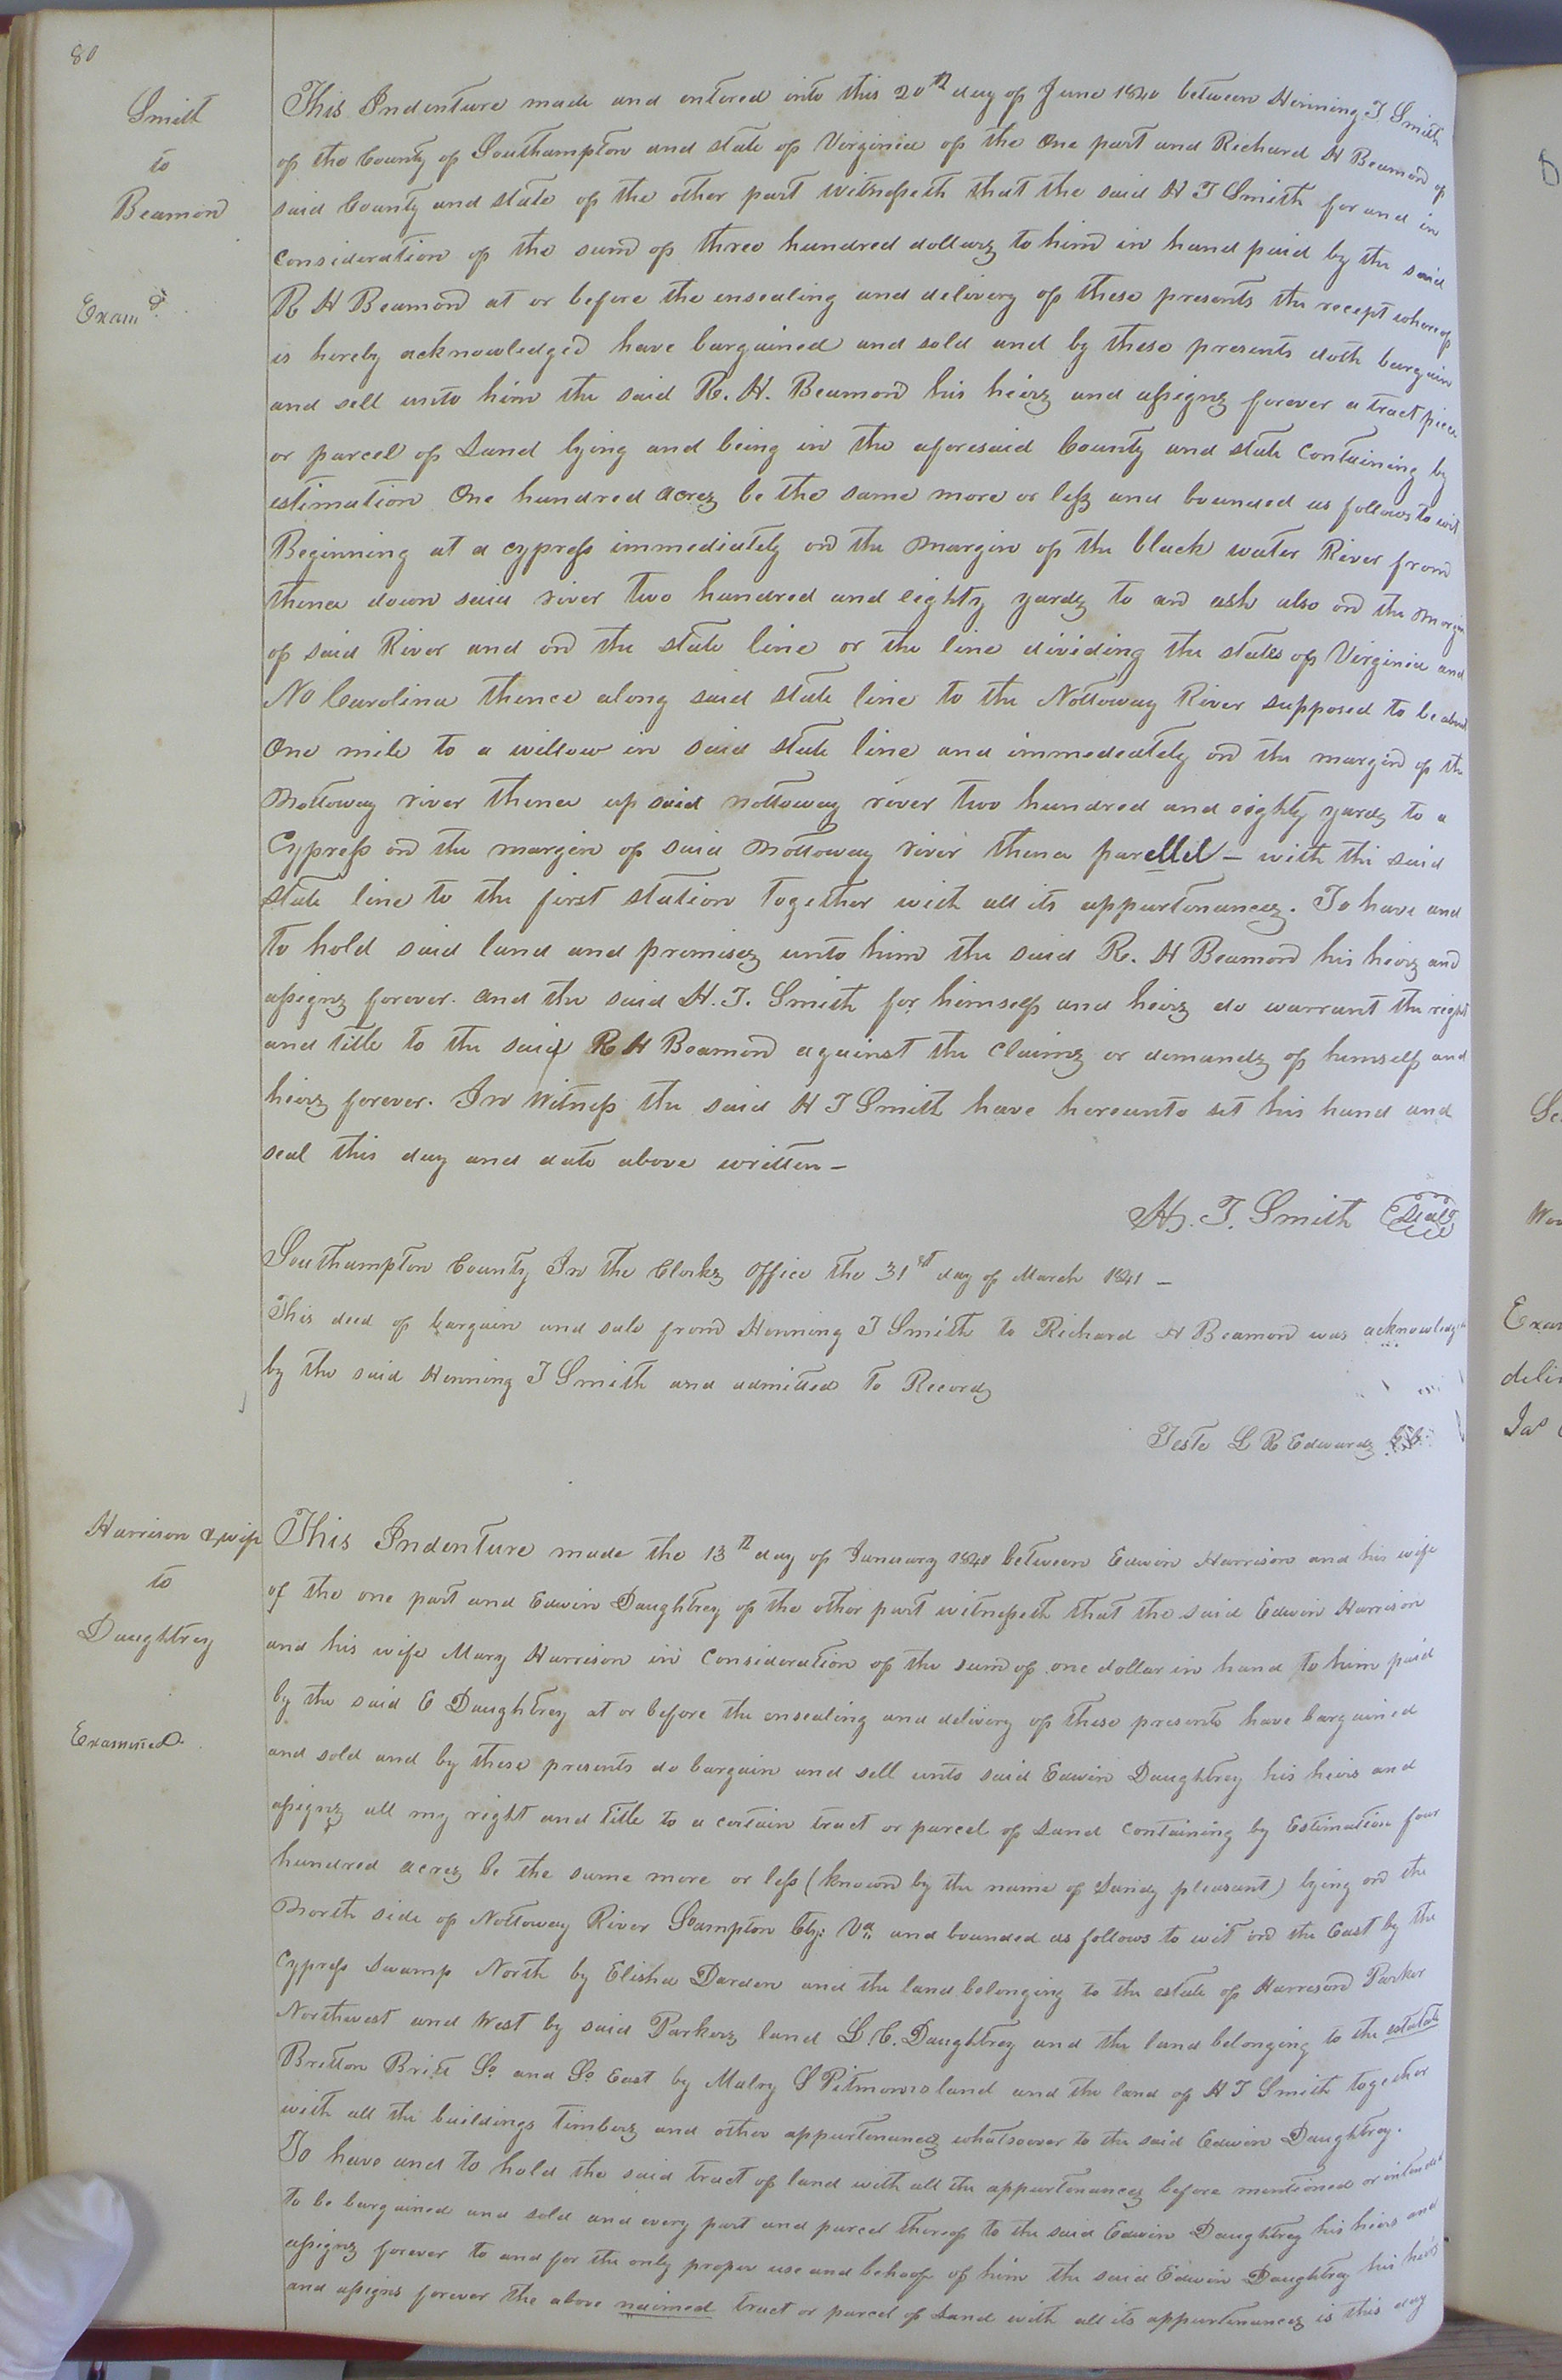 80
Smith
to
Beamon
Exam d
This Indenture made and entered into this 20th day of June 1840 between Henning T Smith
of the County of Southampton and state of Virginia of the One part and Richard H Beamon of
said County and state of the other part witnesseth that the said H T Smith for and in
consideration of the sum of three hundred dollars to him in hand paid by the said
R H Beamon at or before the ensealing and delivery of these presents the recept whereof
is hereby acknowledged have bargained and sold and by these presents doth bargain
and sell unto him the said R. H. Beamon his heirs and assigns forever a tract piece
or parcel of Land lying and being in the aforesaid County and state Containing by
estimation One hundred acres be the same more or less and bounded as follows to wit
Beginning at a cypress immediately on the margin of the black water River from
thence down said river two hundred and eighty yards to an ash also on the margin
of said River and on the state line or the line dividing the states of Virginia and
No Carolina thence along said state line to the Nottoway River supposed to be about
One mile to a willow in said state line and immedeately on the margin of the
Nottoway river thence up said nottoway river two hundred and eighty yards to a
Cypress on the margin of said Nottoway river thence parellel – with the said
state line to the first station together with all its appurtenances. To have and
to hold said land and premises unto him the said R. H Beamon his heirs and
assigns forever. and the said H. T. Smith for himself and heirs do warrant the right
and title to the said R H Beamon against the claims or demands of himself and
heirs forever. In Witness the said H T Smith have hereunto set his hand and
seal this day and date above written –
H. T. Smith Seal
Southampton County In the Clerks Office the 31st day of March 1841 –
This deed of bargain and sale from Henning T Smith to Richard H Beamon was acknowledged
by the said Henning T Smith and admitted to Record
Teste L R Edwards
Harrison & wife
to
Daughtrey
Examined
This Indenture made the 13th day of January 1841 between Edwin Harrison and his wife
of the one part and Edwin Daughtrey of the other part witnesseth that the said Edwin Harrison
and his wife Mary Harrison in Consideration of the sum of one dollar in hand to him paid
by the said E Daughtrey at or before the ensealing and delivery of these presents have bargained
and sold and by these presents do bargain and sell unto said Edwin Daughtrey his heirs and
assigns all my right and title to a certain tract or parcel of Land containing by Estimation four
hundred acres be the same more or less (known by the name of Sandy pleasant) lying on the
North side of Nottoway River Sampton Cty: Va and bounded as follows to wit on the East by the
Cypress Swamp North by Elisha Darden and the land belonging to the estate of Harreson Parker
Northwest and West by said Parkers land L. C. Daughtrey and the land belonging to the estate
Britton Britt So. and So. East by Malry S Pitmons land and the land of H T Smith together
with all the buildings timbers and other appurtenances whatsoever to the said Edwin Daughtrey.
To have and to hold the said tract of land with all the appurtenances before mentioned or intended
to be bargained and sold and every part and parcel thereof to the said Edwin Daughtrey his heirs and
assigns forever to and for the only proper use and behoof of him the said Edwin Daughtrey his heirs
and assigns forever the above naimed tract or parcel of Land with all its appurtenances is this day